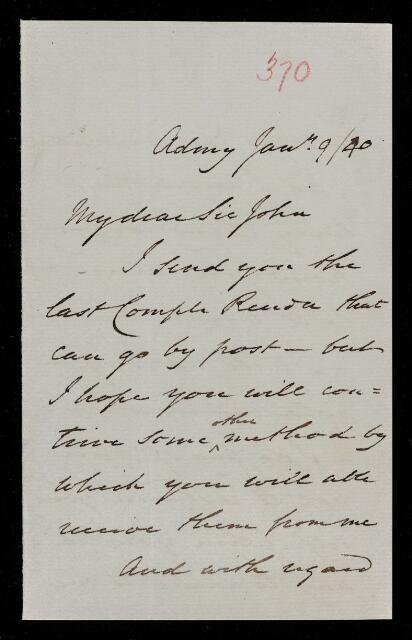 370
Admy Jany. 9/40
My dear Sir John
I send you the
last Compte Rendu that
can go by post — but
I hope you will con=
trive some other method by
which you will
receive them from me
And with regard